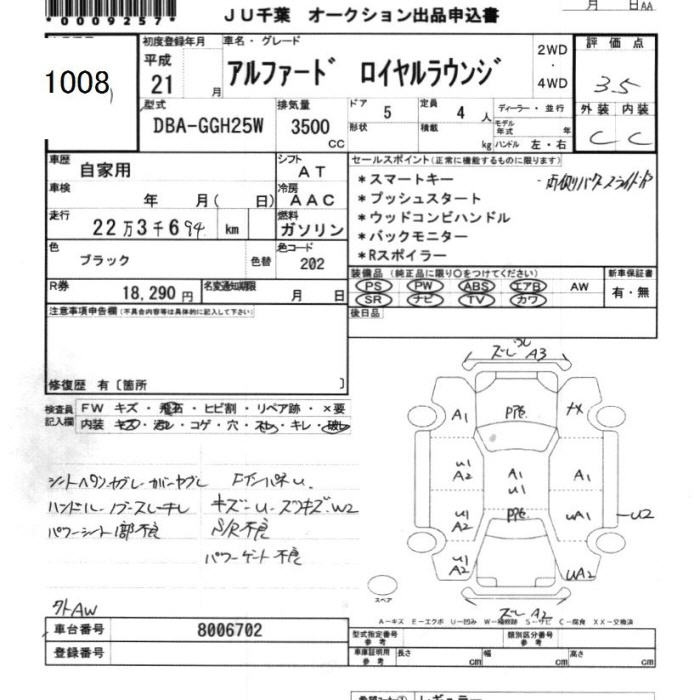 月 日 AA
*0009257*
JU千葉 オークション出品申込書
1008
初度登録年月
平成
21 月
車名・グレード
アルファード ロイヤルラウンジ
2WD
・
4WD
評価点
3.5
外装 内装
C C
型式
DBA-GGH25W
排気量
3500
CC
ドア 5
形状
定員 4 人
積載 kg
ディーラー・並行
モデル年式 年
ハンドル 左・右
車歴
自家用
シフト
AT
車検
年 月( 日)
冷房
AAC
走行
22万3千694 km
燃料
ガソリン
色
ブラック
色替
色コード
202
R券
18,290円
名変通知期限
月 日
セールスポイント(正常に機能するものに限ります)
*スマートキー
*プッシュスタート
*ウッドコンビハンドル
*バックモニター
*Rスポイラー
装備品 (純正品に限り○をつけてください)
PS PW ABS エアB AW
SR ナビ TV カワ
新車保証書
有・無
後日品
注意事項申告欄(不具合内容等は具体的に記入して下さい)
修復歴 有〔箇所 〕
検査員記入欄
FW キズ・飛石・ヒビ割・リペア跡・×要
内装 キズ・汚レ・コゲ・穴・スレ・キレ・破レ
ハンドル
パワーシート1部不良
キズ・U
W2
S/R不良
パワーゲート不良
AW
ズレ A3
A1
PPE
U1
A2
A1
U1
A1
U1
A2
PPE
UA1
U2
U1
A2
UA2
ズレ A2
スペア
A-キズ E-エクボ U-凹み W-補修跡 S-サビ C-腐食 XX-交換済
車台番号 8006702
登録番号
型式指定番号
参考
類別区分番号
参考
車庫証明用
参考
長さ cm 幅 cm 高さ cm
レギュラー